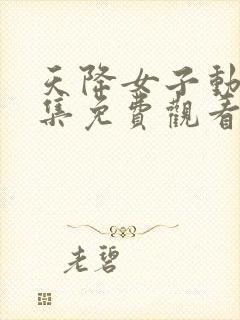 天降女子動
集免費觀看
老碧